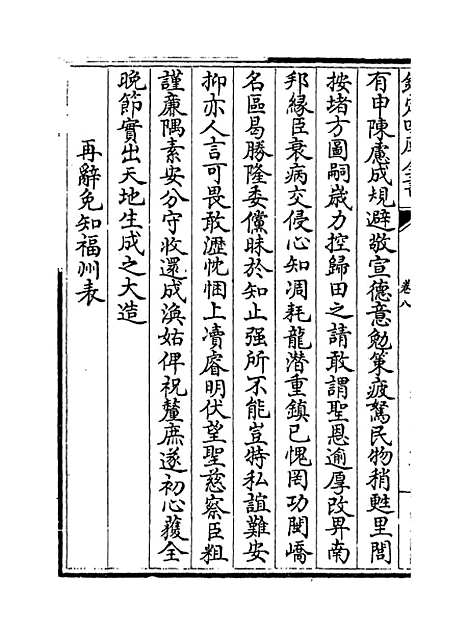 欽定四庫全書
卷八
有申陳慮成規避敬宣德意勉䇿疲駑民物稍甦里閭
按堵方圖嗣嵗力控歸田之請敢謂聖恩逾厚改畀南
邦縁臣衰病交侵心知凋耗龍潛重鎮已愧罔功閩嶠
名區曷勝隆委儻昧於知止强所不能豈特私誼難安
抑亦人言可畏敢瀝忱悃上凟睿明伏望聖慈察臣粗
謹亷隅素安分守收還成渙姑俾祝釐庶遂初心䕶全
晩節實出天地生成之大造
再辭免知福州表